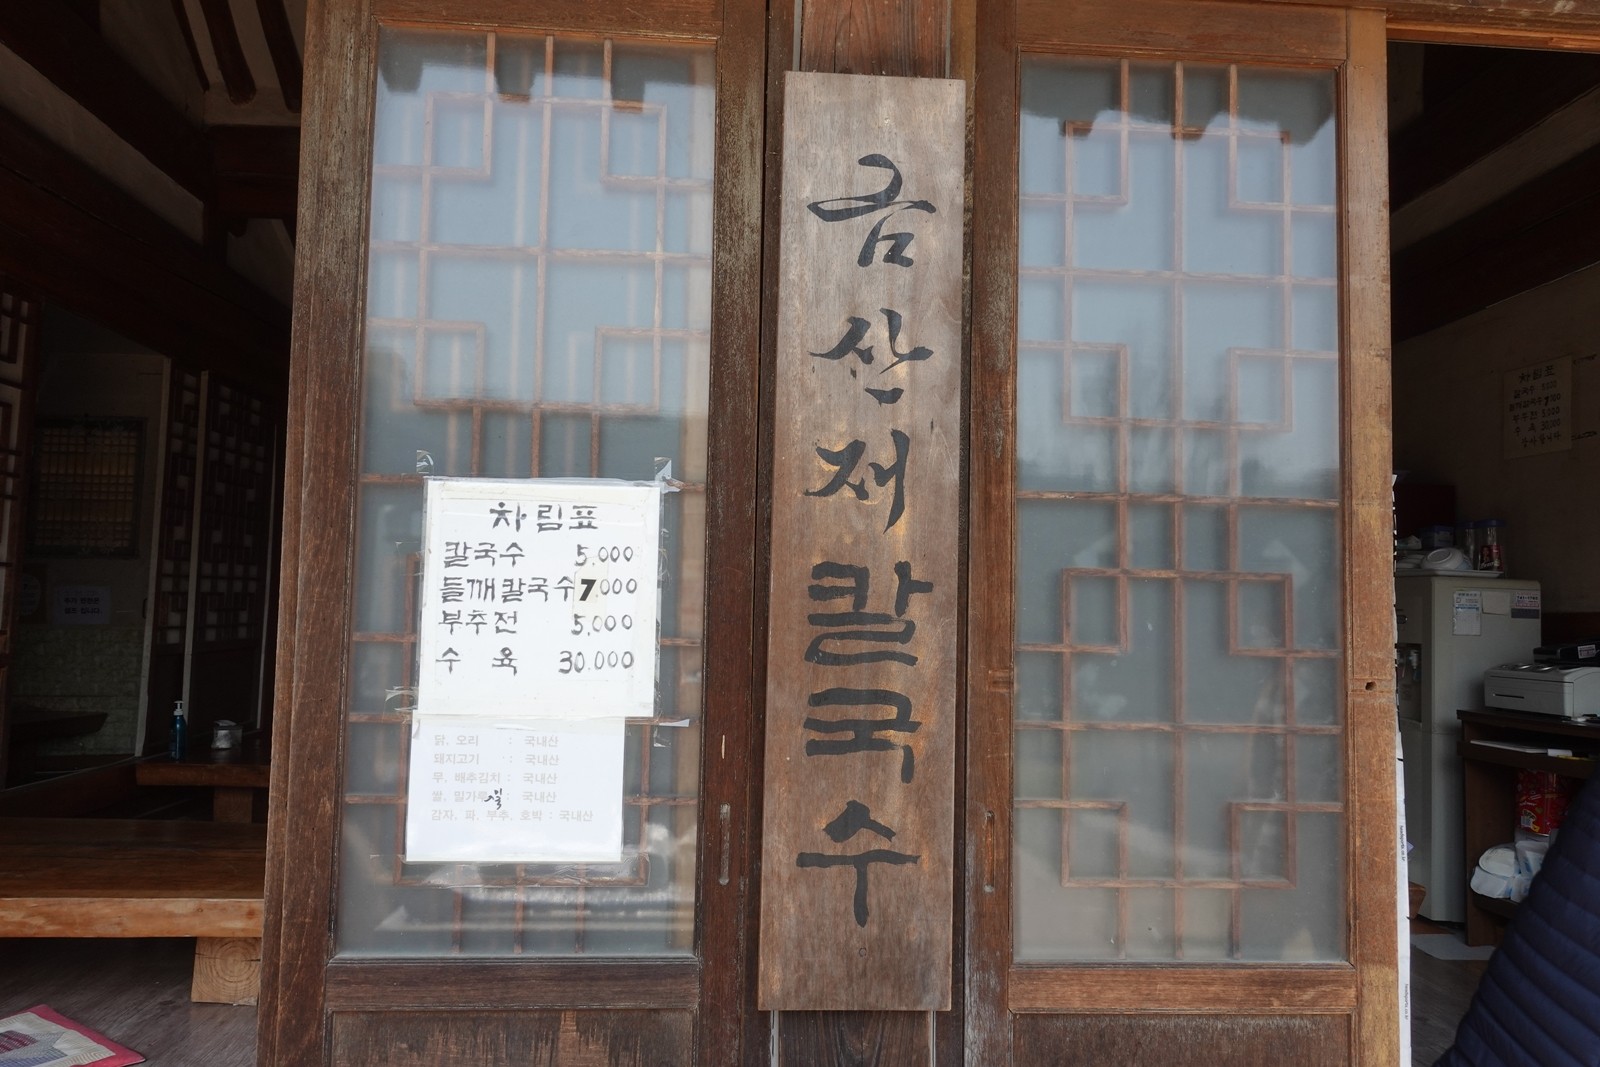 금산재칼국수
차림표
칼국수 5.000
들깨칼국수 7.000
부추전 5.000
수 육 30.000
닭, 오리 : 국내산
돼지고기 : 국내산
무, 배추김치 : 국내산
쌀, 밀가루 : 국내산
감자, 파, 부추, 호박 : 국내산
차림표
칼국수 5.000
들깨칼국수 7.000
부추전 5.000
수 육 30.000